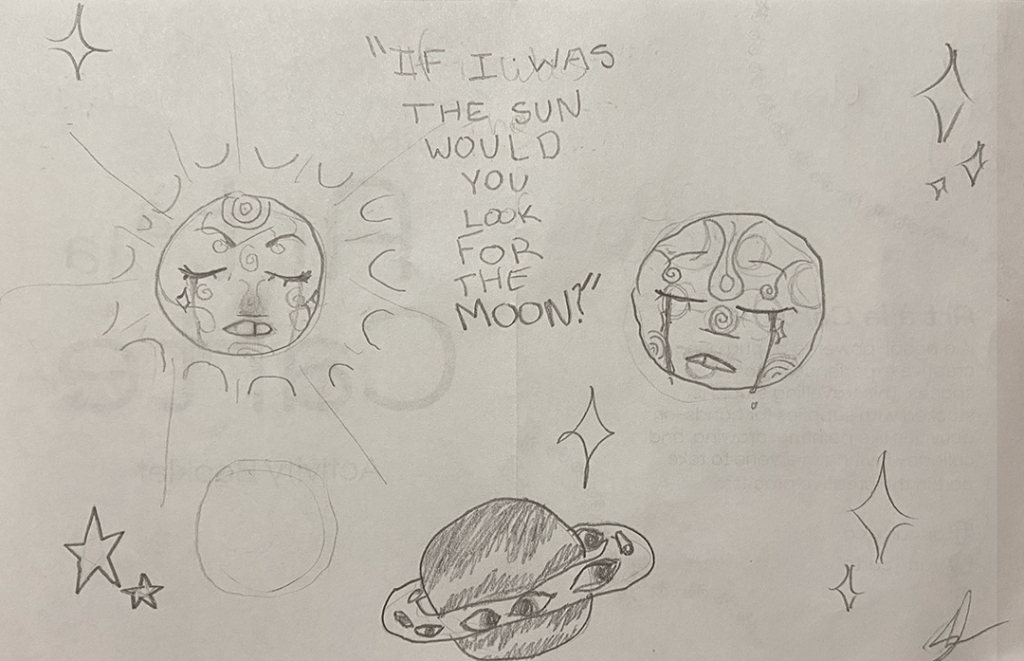 "IF I WAS
THE SUN
WOULD
YOU
LOOK
FOR
THE
MOON?"